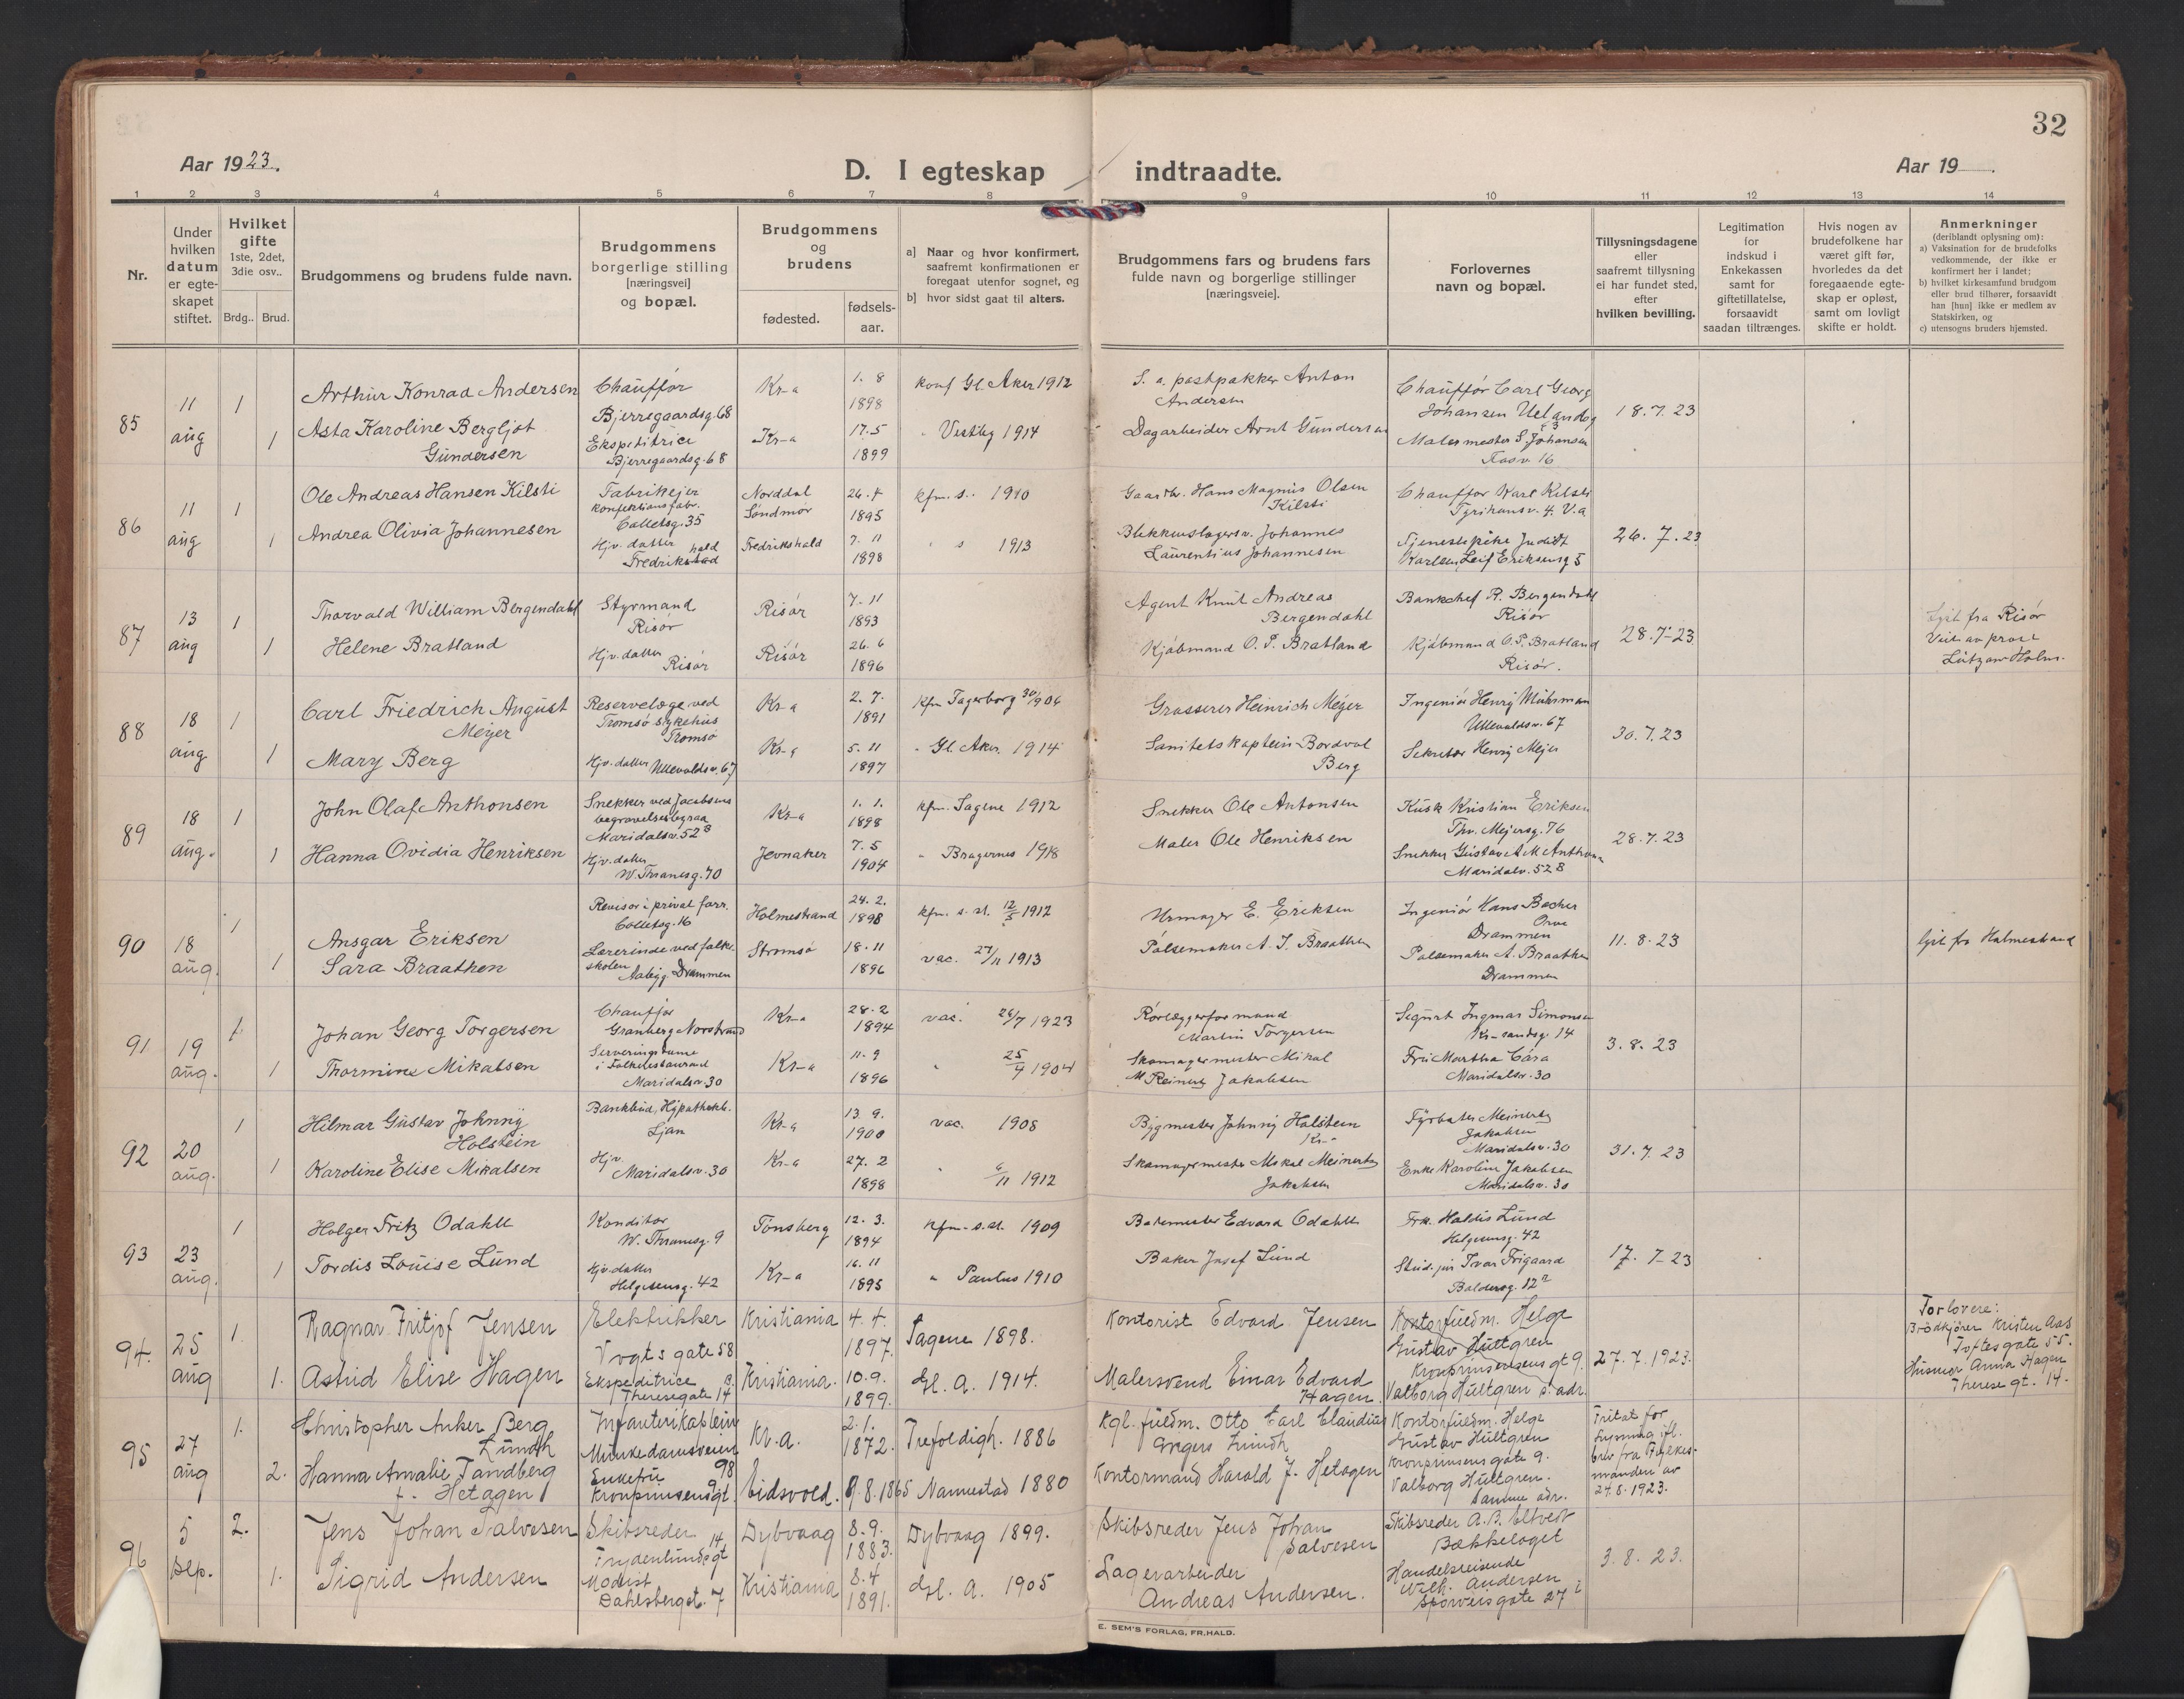 32
Aar 1923.
D. I egteskap indtraadte.
Aar 19
1 2 3 4 5 6 7 8 9 10 11 12 13 14
Nr.
Under hvilken datum er egte- skapet stiftet.
Hvilket gifte 1ste, 2det, 3die osv..
Brdg.. Brud.
Brudgommens og brudens fulde navn.
Brudgommens borgerlige stilling [næringsvei] og bopæl.
Brudgommens og brudens
fødested.
fødsels- aar.
a] Naar og hvor konfirmert, saafremt konfirmationen er foregaat utenfor sognet, og
b] hvor sidst gaat til alters.
Brudgommens fars og brudens fars fulde navn og borgerlige stillinger [næringsveie].
Forlovernes navn og bopæl.
Tillysningsdagene eller saafremt tillysning ei har fundet sted, efter hvilken bevilling.
Legitimation for indskud i Enkekassen samt for giftetillatelse, forsaavidt saadan tiltrænges.
Hvis nogen av brudefolkene har været gift før, hvorledes da det foregaaende egte- skap er opløst, samt om lovligt skifte er holdt.
Anmerkninger (deriblandt oplysning om):
a) Vaksination for de brudefolks vedkommende, der ikke er konfirmert her i landet;
b) hvilket kirkesamfund brudgom eller brud tilhører, forsaavidt han [hun] ikke er medlem av Statskirken, og
c) utensogns bruders hjemsted.
85
11 aug
1
Arthur Konrad Andersen
Chauffør
Bjerregaardsg. 68
Kr-a
1. 8 1898
konf Gl. Aker 1912
S. a. postpakker Anton Andersen
Chauffør Carl Georg Johansen
18.7.23
1
Asta Karoline Bergljot Gundersen
Ekspeditrice
Bjerregaardsg. 68
Kr-a
17.5 1899
" Vestby 1914
Dagarbeider Arnt Gundersen
Malermester S. Johansen
86
11 aug
1
Ole Andreas Hansen Kilsti
Fabrikejer
konfektionsfabr.
Colletsg. 35
Norddal Søndmør
26.4 1895
kfm. s.. 1910
Gaardbr. Hans Magnus Olsen Kilsti
Chauffør Karl Kilsti
Tyrihansv. 4. V.a
26.7.23
1
Andrea Olivia Johannesen
Hjv. datter
Fredrikshald
Fredrikshald
7. 11 1898
" s 1913
Blikkenslagersv. Johannes Laurentius Johannesen
Tjenestepike Judith Karlsen, Leif Eriksensg 5
87
13 aug
1
Thorvald William Bergendahl
Styrmand
Risør
Risør
7-11 1893
Agent Knut Andreas Bergendahl
Bankchef R. Bergendahl
Risør
28.7-23
Lyst fra Risør
Viet av prost
Lützow Holm.
1
Helene Bratland
Hjv. datter
Risør
Risør
26.6 1896
Kjøbmand O. P. Bratland
Kjøbmand O. P. Bratland
Risør.
88
18 aug
1
Carl Friedrich August Meyer
Reservelæge ved
Tromsø sykehus
Tromsø
Kr-a
2. 7. 1891
kfm Fagerborg 30/ 1906
Grosserer Heinrich Meyer
Ingeniør Henry
Ullevoldsv. 67
30.7.23
1
Mary Berg
Hjv. datter Ullevoldsv. 67
Kr-a
5. 11 1897
" Gl. Aker. 1914
Sanitetskaptein Bordvol Berg
Sekretær Henry Mejer
89
18 aug.
1
John Olaf Anthonsen
Snekker ved Jacobsens
begravelsesbyraa
Maridalsv. 52 B
Kr-a
1. 1. 1898
kfm. Sagene 1912
Snekker Ole Antonsen
Kusk Kristian Eriksen
Thv. Mejersg. 76
28.7.23
1
Hanna Ovidia Henriksen
Hjv. datter
W. Thranesg. 70
Jevnaker
7. 5 1904
" Bragernes 1918
Maler Ole Henriksen
Snekker Gustav A. M. Anthonsen
Maridalv. 52 B
90
18 aug.
1
Ansgar Eriksen
Revisor i privat forr.
Colletsg. 16
Holmestrand
24. 2. 1898
kfm. s. st. 12/5 1912
Urmager E. Eriksen
Ingeniør Hans Bacher
Drammen
11.8.23
lyst fra Holmestrand
1
Sara Braathen
Lærerinde ved folke-
skolen
Drammen
Strømsø
18.11 1896
vac. 27/11 1913
Pølsemaker A. J. Braathen
Pølsemaker A. Braathen
Drammen
91
19 aug.
1
Johan Georg Torgersen
Chauffør
Granberg Norstrand
Kr-a
28.2 1894
vac. 26/7 1923
Rørlæggerformand
Martin Torgersen
Sigurt Ingmar Simonsen
Kr-sandsg. 14
3.8.23
1
Thormine Mikalsen
Serveringsdame
i Folkerestaurant
Maridalsv. 30
Kr-a
11. 9 1896
" 25/9 1904
Skomagermester Mikal
M Reinertz Jakobsen
Fru Martha Cara
Maridalsv. 30
92
20 aug.
1
Hilmar Gustav Johnny Holstein
Bankbud, Hypothekb.
Ljan
Kr-a
13. 9. 1900
vac. 1908
Bygmester Johnny Holstein
Kr.-
Fyrbøter Meinertz Jakobsen
Maridalsv. 30
31.7.23
1
Karoline Elise Mikalsen
Hjv.
Maridalsv. 30
Kr-a
27. 2 1898
" 6/11 1912
Skomagermester Mikal Meinertz Jakobsen
Enke Karoline Jakobsen
Maridalsv. 30
93
23 aug.
1
Holger Fritz Odahll
Konditor
W. Thranesg. 9
Tønsberg
12. 3. 1894
kfm. s. st. 1909
Bakermester Edvard Odahll
Frk. Haldis Lund
Helgesensg. 42
17. 7-23
1
Tordis Louise Lund
Hjv. datter
Helgesensg. 42
Kr-a
16. 11 1895
" Paulus 1910
Baker Josef Lund
Stud. jur Ivar Frigaard
Baldersg. 12
94.
25 aug
1.
Ragnar Fritjof Jensen
Elektrikker
Vogts gate 58
Kristiania
4. 4. 1897.
Sagene 1898.
Kontorist Edvard Jensen
Kontorfuldm. Helge Gustav Hultgren
Kronprinsensgt 9.
27.7.1923.
Forlovere:
Brødkjører Kristen Aas
Toftesgate 55.
Husmor Anna Hagen
Therese gt. 14.
1.
Astrid Elise Hagen
Ekspeditrice
Theresegate 14
Kristiania.
10.9. 1899.
Gl. A. 1914.
Malersvend Einar Edvard Hagen
Valborg Hultgren s. adr.
95
27 aug
1.
Christopher Anker Berg Lundh
Infanterikaptein
Munkedamsveien 98
Kr.a.
2.1. 1872.
Trefoldigh. 1886
Kgl. fuldm. Otto Carl Claudius Gregers Lundh
Kontorfuldm. Helge
Gustav Hultgren
Kronprinsensgate 9.
Fritat for
lysning ifl.
brev fra Fylkes-
manden av
24.8.1923.
2.
Hanna Amalie Tandberg
f. Hetagen
Enkefru
Kronprinsensgt. 9
Eidsvold.
9.8.1865
Nannestad 1880
Kontormand Harald J. Hetagen
Valborg Hultgren.
Samme adr.
96
5 sep.
2.
Jens Johan Salvesen
Skibsreder
Frydenlundsgt 14
Dybvaag
8.9. 1883.
Dybvaag 1899.
Skibsreder Jens Johan Salvesen
Skibsreder A. B. Eltvedt
Bækkelaget
3.8.23.
1.
Sigrid Andersen
Modist
Dahlsbergst. 7
Kristiania
8.4 1891.
Gl. A. 1905
Lagerarbeider
Andreas Andersen.
Handelsreisende
Wilh. Andersen
Sporveisgate 27
E. SEM'S FORLAG, FR.HALD.